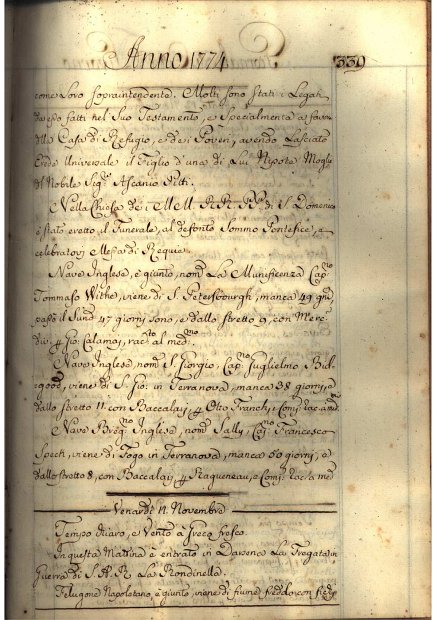 Anno 1774
339
come Loro sopraintendente. Molti sono stati i Legati
da esso fatti nel Suo Testamento, e Specialmente a favore
della Casa di Refugio, e de i Poveri, avendo Lasciato
Erede Universale il Figlio d'una di Lui Nipote Moglie
del Nobile Sigr. Ascanio Pitti.
Nella Chiesa dei MM. RR. PP. di S. Domenico
è stato eretto il Funerale, al defonto Sommo Pontefice, e
celebratovi Messa di Requie.
Nave Inglese, è giunto, nomta La Munificenza Capno
Tommaso Withe, viene di S. Petersbourgh, manca 49 gni
passò il Sund 47 giorni sono, e dallo stretto 9, con Merc
div: p Gio: Calamai, racto al medmo
Nave Inglese, nomta S. Giorgio, Capno Guglielmo
viene di S. Gio: in Terranova, manca 38 giorni, e
dallo stretto 11 con Baccalay, p Otto Franch, e Comp
Nave Inglese, nomta Sally, Capno Francesco
Spech, viene di Fogo in Terranova, manca 50 giorni, e
dallo stretto 8, con Baccalay, p Ragueneau, e Comp
Venardì 11. Novembre
Tempo chiaro, e Vento a Greco fresco.
In questa Mattina è entrato in Darsena La Fregata in
Guerra di S. A. R. La Rondinella.
Felugone Napoletano, è giunto, viene di fiume freddo con